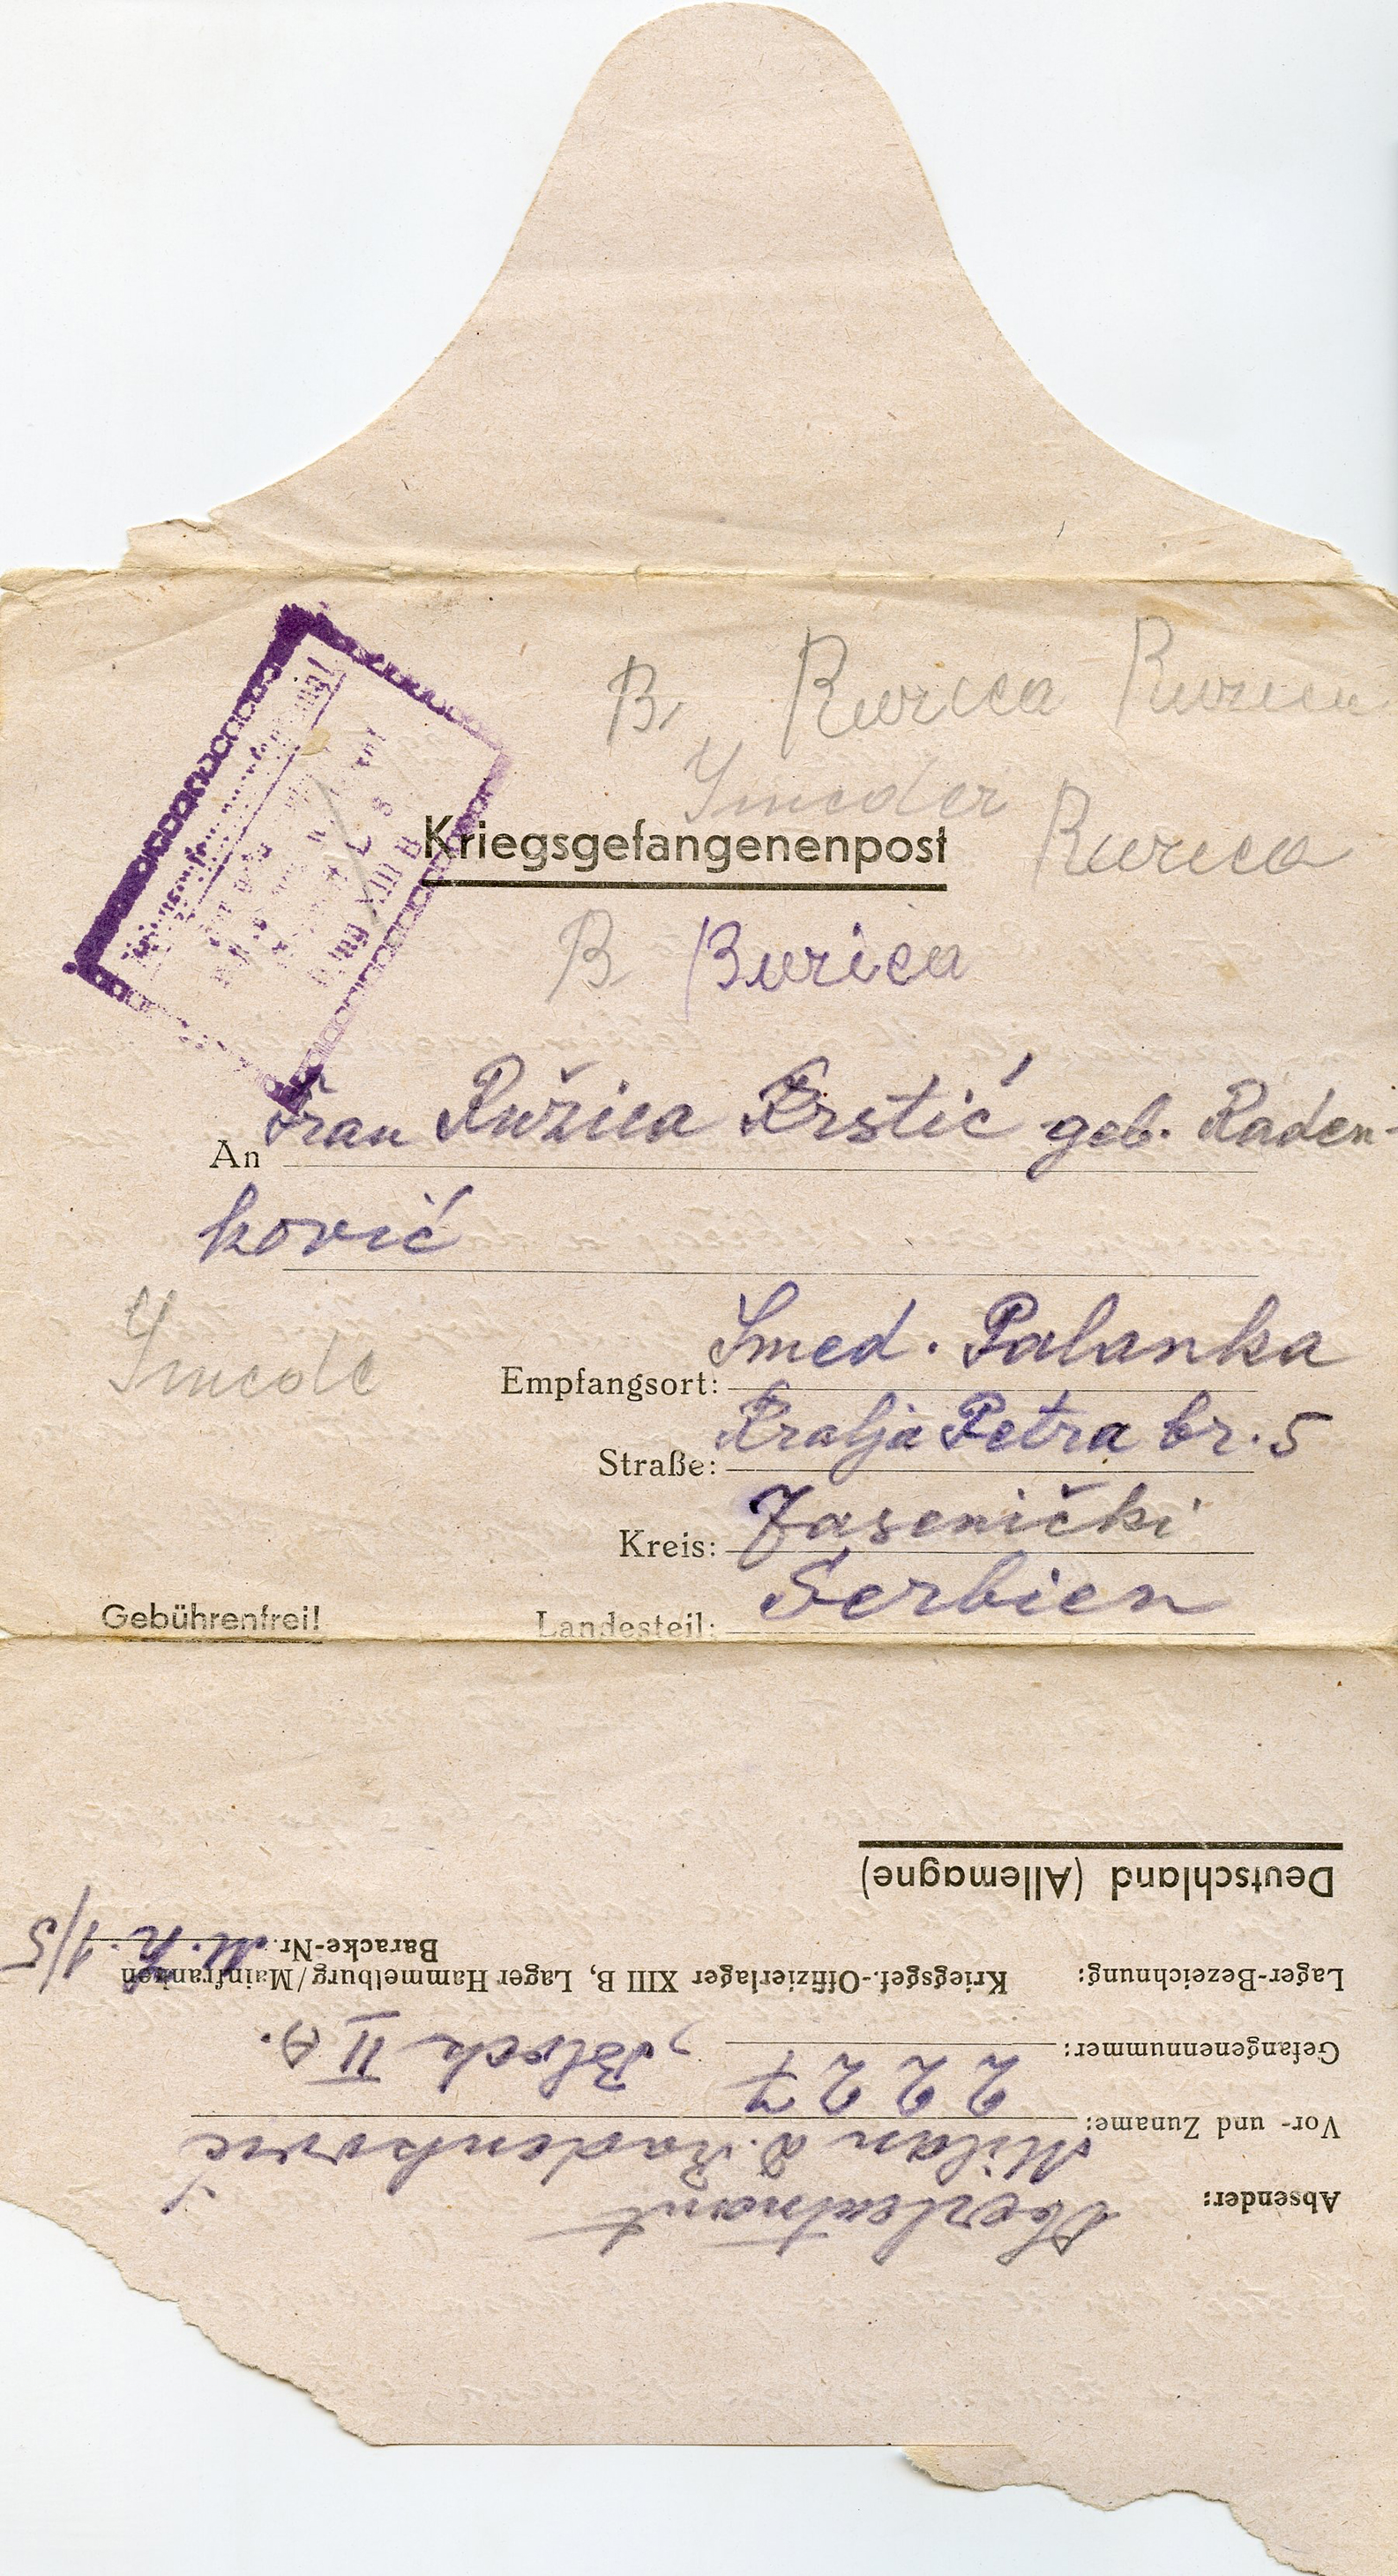 B, Rurica Rurica
Smeder
Kriegsgefangenenpost
Rurica
B Burica
An Frau Ružica Krstić geb. Raden-
ković
Smede
Empfangsort: Smed. Palanka
Straße: Kralja Petra br. 5
Kreis: Jasenički
Gebührenfrei!
Landesteil: Serbien
Absender: Oberleutnant
Vor- und Zuname: Milan D. Radenković
Gefangenennummer: 2227, Block II A.
Lager-Bezeichnung: Kriegsgef.-Offizierlager XIII B, Lager Hammelburg/Mainfranken
Baracke-Nr. 1/5
Deutschland (Allemagne)